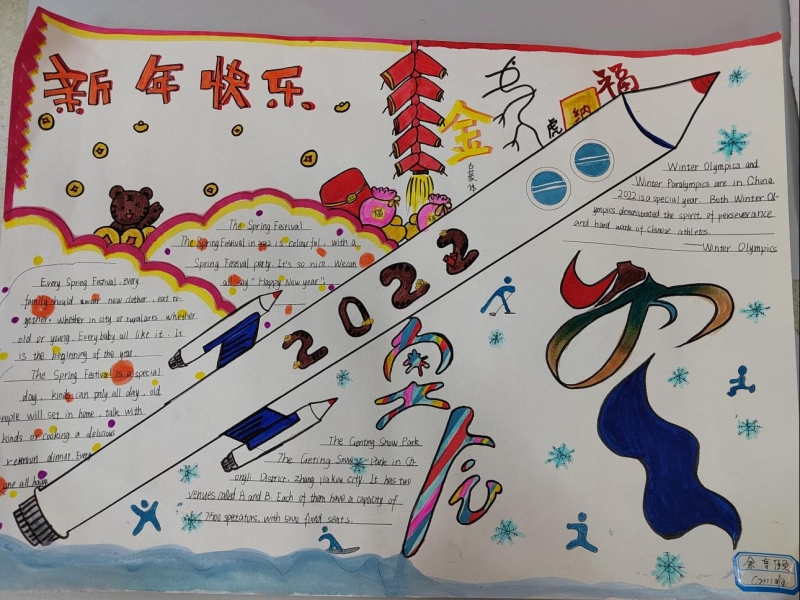 新年快乐
金
虎
纳
福
2022
The Spring Festival
The Spring Festival in 2022 is colourful, with a
Spring Festival party. It's so nice. We can
all say "Happy New year"
Every Spring Festival, every
family should wear new clother, eat re-
gether. Whether in city or ruralares, whether
old or young. Everybody all like it. It
is the beginning of the year.
The Spring Festival is a special
day, kinds can play all day, old
people will set in home, talk with
kinds or cooking a delicious
reunion dinner. Every
one all have
Winter Olympics and
Winter Paralympics are in China.
2022 is a special year. Both Winter Ol-
ympics demonstrated the spirit of perseverance
and hard work of Chinese athletes.
—Winter Olympics
The Genting Snow Park
The Genting Snow Park in Ch-
ongli District, Zhang jia kou city. It has two
venues called A and B. Each of them have a capacity of
7500 spetators, with 5000 fixed seats.